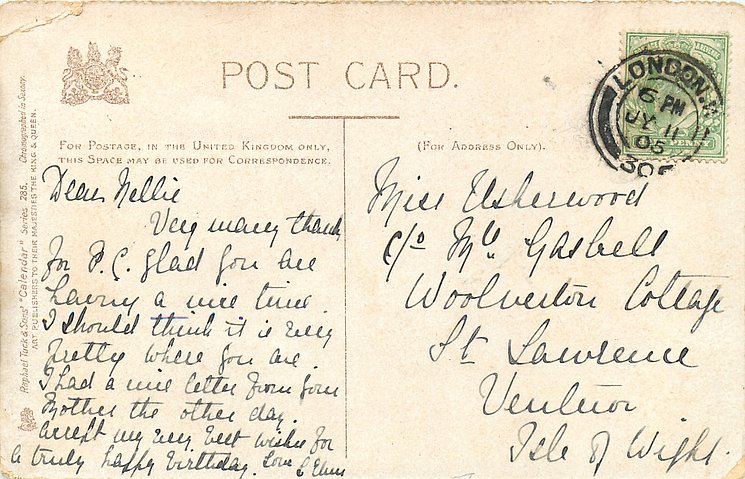 POST CARD.
FOR POSTAGE, IN THE UNITED KINGDOM ONLY,
THIS SPACE MAY BE USED FOR CORRESPONDENCE.
(FOR ADDRESS ONLY).
LONDON.W
6 PM
JY 11
05
PENNY
Raphael Tuck & Sons' "Calendar" Series 285. Chromographed in Saxony.
ART PUBLISHERS TO THEIR MAJESTIES THE KING & QUEEN.
Dear Nellie
Very many thanks
for P.C. glad you are
having a nice time.
I should think it is very
pretty where you are.
I had a nice letter from your
Mother the other day.
Accept my very best wishes for
a truly happy birthday. Love
Miss Usherwood
c/o Mrs. Gasbell
Woolverton Cottage
St Lawrence
Ventnor
Isle of Wight.